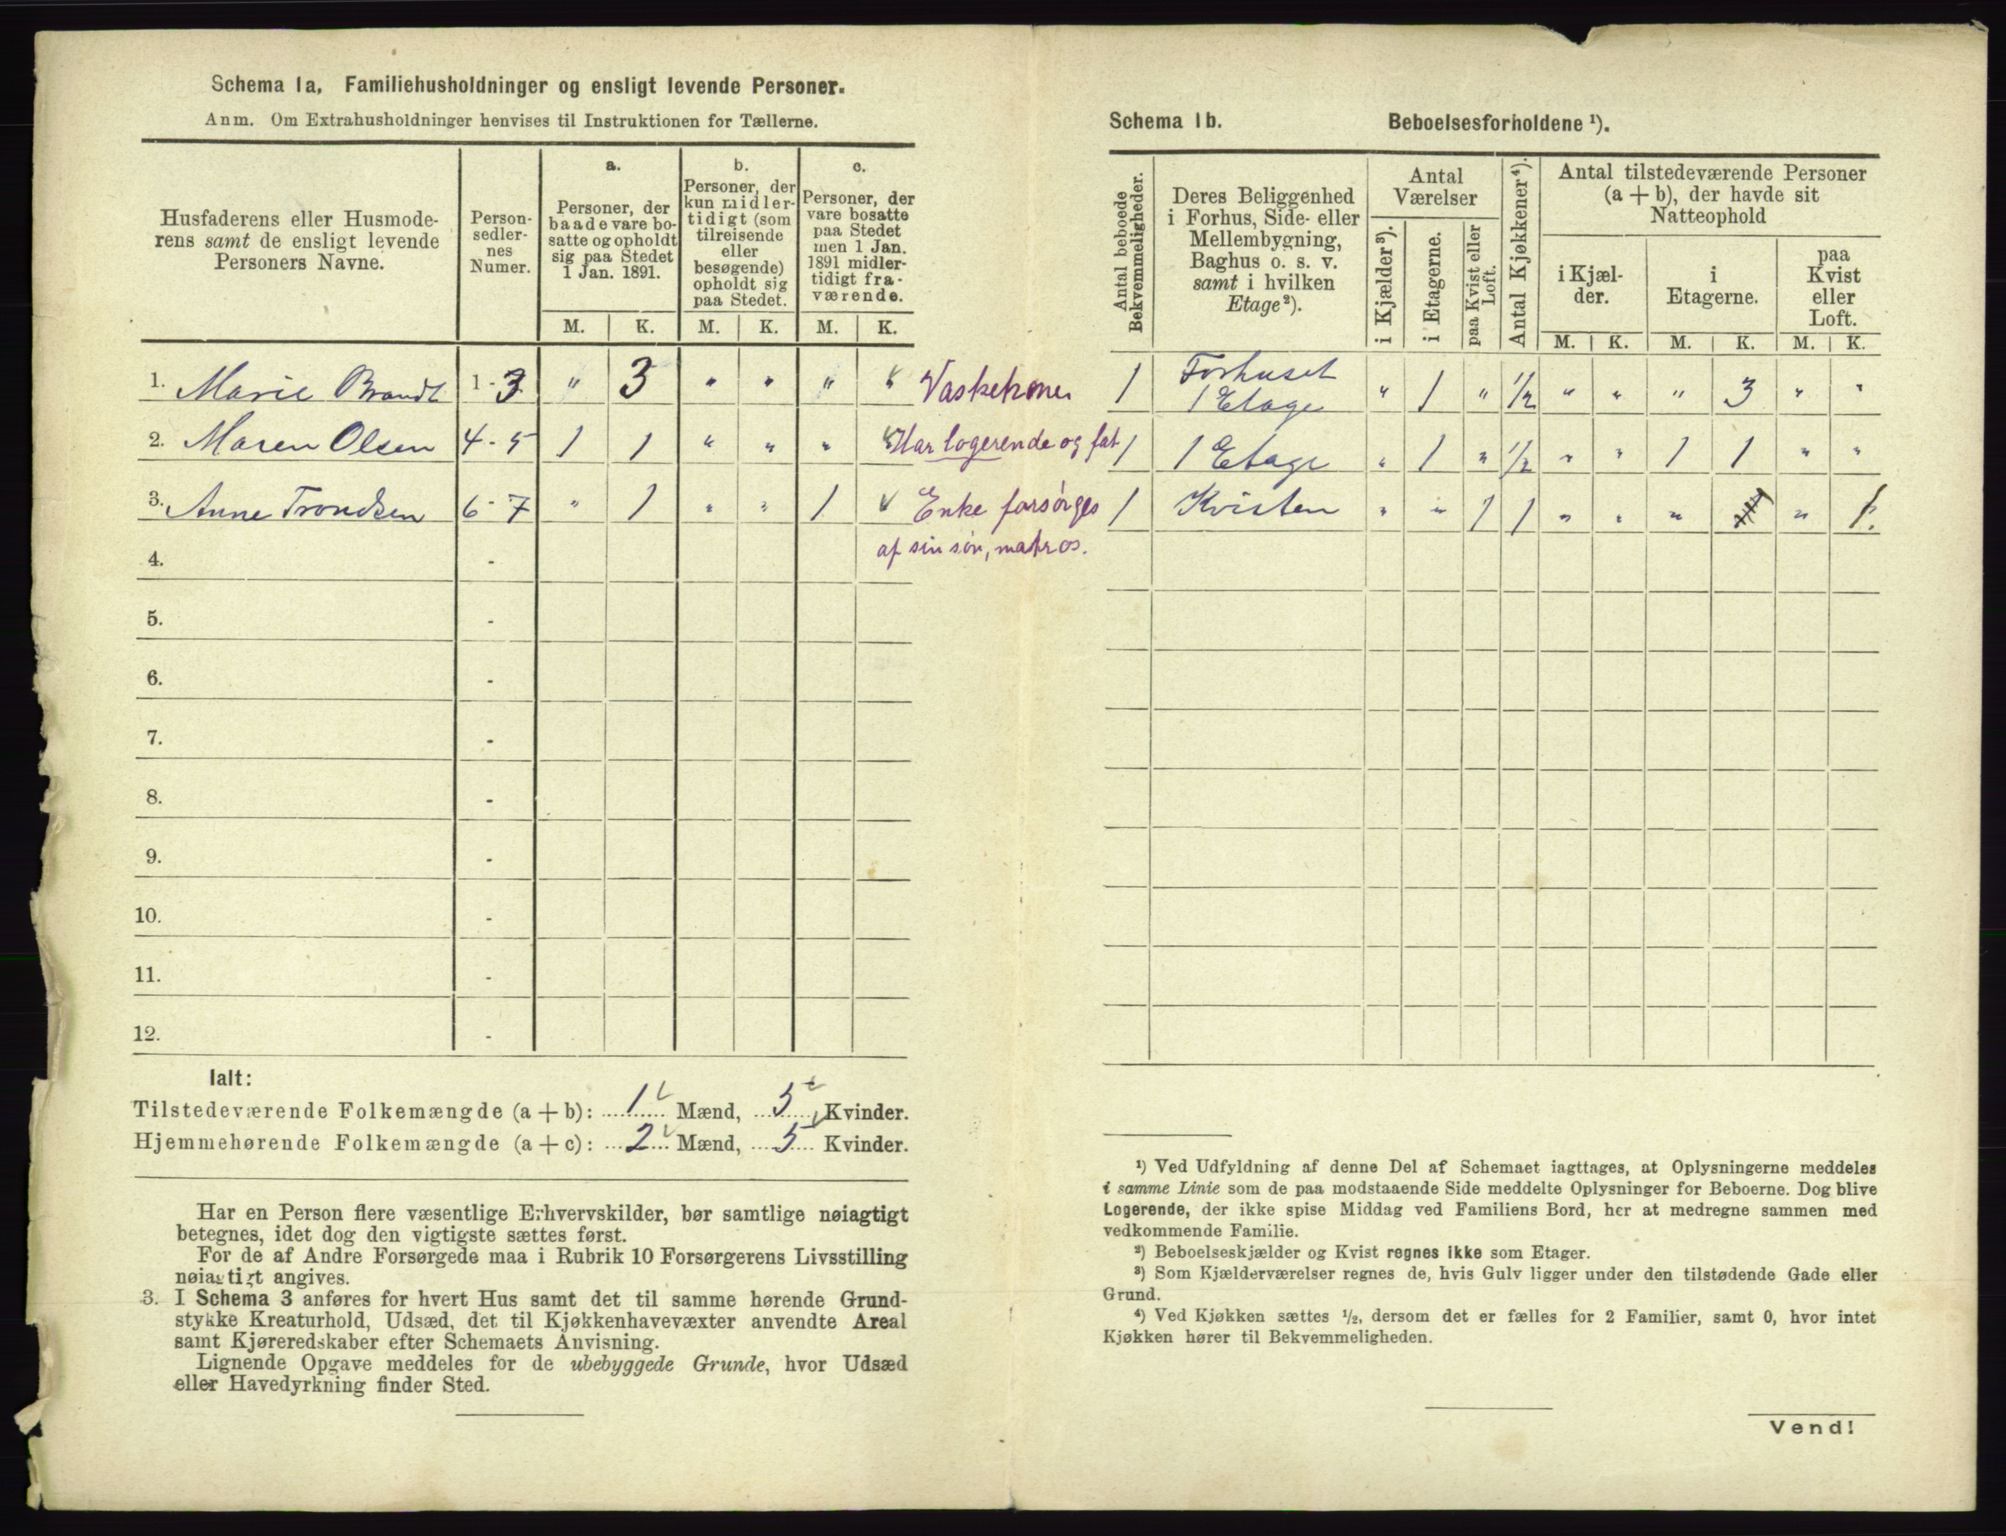 Schema 1a. Familiehusholdninger og ensligt levende Personer.
Anm. Om Extrahusholdninger henvises til Instruktionen for Tællerne.
Husfaderens eller Husmode-
rens samt de ensligt levende
Personers Navne.
Person-
sedler-
nes
Numer.
a.
Personer, der
baade vare bo-
satte og opholdt
sig paa Stedet
1 Jan. 1891.
M. K.
b.
Personer, der
kun midler-
tidigt (som
tilreisende
eller
besøgende)
opholdt sig
paa Stedet.
M. K.
c.
Personer, der
vare bosatte
paa Stedet
men 1 Jan.
1891 midler-
tidigt fra-
værende.
M. K.
1. Marie Brandt 1-3 " 3 " " " " Vaskekone.
2. Maren Olsen 4-5 1 1 " " " " Har logerende og fat
3. Anne Trondsen 6-7 " 1 " " 1 " Enke forsørges
af sin søn, matros.
4. -
5. -
6. -
7. -
8. -
9. -
10. -
11. -
12. -
Ialt:
Tilstedeværende Folkemængde (a + b): 1 Mænd, 5 Kvinder.
Hjemmehørende Folkemængde (a + c): 2 Mænd, 5 Kvinder.
Har en Person flere væsentlige Erhvervskilder, bør samtlige nøiagtigt
betegnes, idet dog den vigtigste sættes først.
For de af Andre Forsørgede maa i Rubrik 10 Forsørgerens Livsstilling
nøiagtigt angives.
3. I Schema 3 anføres for hvert Hus samt det til samme hørende Grund-
stykke Kreaturhold, Udsæd, det til Kjøkkenhavevæxter anvendte Areal
samt Kjøreredskaber efter Schemaets Anvisning.
Lignende Opgave meddeles for de ubebyggede Grunde, hvor Udsæd
eller Havedyrkning finder Sted.
Schema 1b. Beboelsesforholdene ¹).
Antal beboede
Bekvemmeligheder.
Deres Beliggenhed
i Forhus, Side- eller
Mellembygning,
Baghus o. s. v.
samt i hvilken
Etage²).
Antal
Værelser
i Kjælder³).
i Etagerne.
paa Kvist eller
Loft.
Antal Kjøkkener⁴).
Antal tilstedeværende Personer
(a + b), der havde sit
Natteophold
i Kjæl-
der.
i
Etagerne.
paa
Kvist
eller
Loft.
M. K. M. K. M. K.
1 Forhuset
1 Etage " 1 " 1/2 " " " 3 " "
1 1 Etage " 1 " 1/2 " " 1 1 " "
1 Kvisten " " 1 1 " " " " 1.
¹) Ved Udfyldning af denne Del af Schemaet iagttages, at Oplysningerne meddeles
i samme Linie som de paa modstaaende Side meddelte Oplysninger for Beboerne. Dog blive
Logerende, der ikke spise Middag ved Familiens Bord, her at medregne sammen med
vedkommende Familie.
²) Beboelseskjælder og Kvist regnes ikke som Etager.
³) Som Kjælderværelser regnes de, hvis Gulv ligger under den tilstødende Gade eller
Grund.
⁴) Ved Kjøkken sættes ½, dersom det er fælles for 2 Familier, samt 0, hvor intet
Kjøkken hører til Bekvemmeligheden.
Vend!